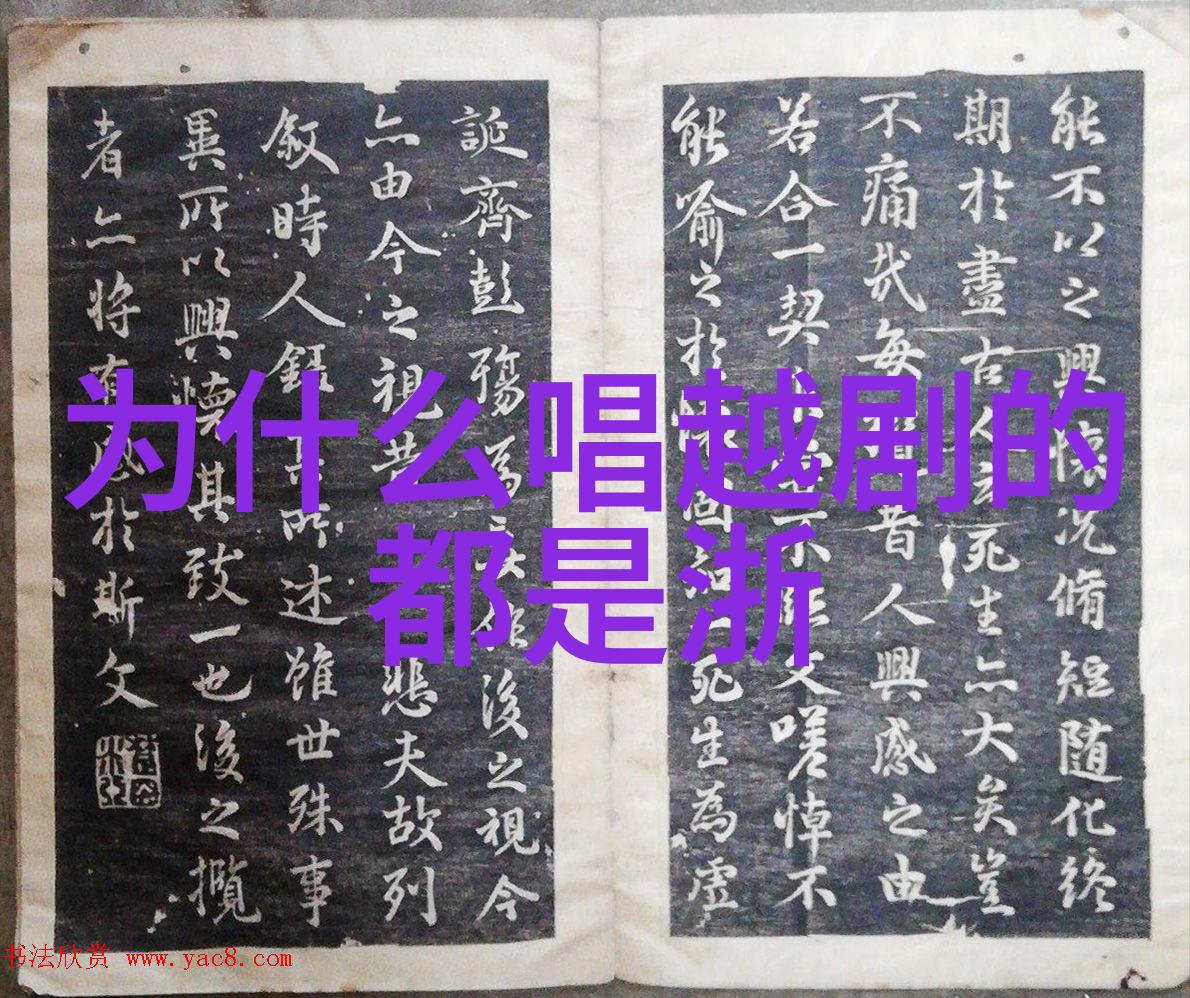 能不以之興懷況脩短随化終
期於盡古人云死生亦大矣豈
不痛哉每昔人興感之由
若合一契不臨文嗟悼不
能喻之於懷固知一死生為虛
誕齊彭殤為作後之視今
亦由今之視昔悲夫故列
叙時人錄其所述雖世殊事
異所以興懷其致一也後之攬
者亦将有感於斯文
为什么唱越剧的
都是浙
书法欣赏 www.yac8.com